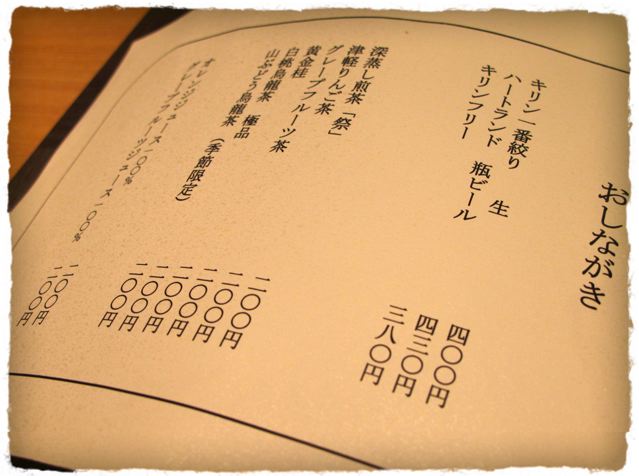 おしながき
キリン一番絞り 生 四〇〇円
ハートランド 瓶ビール 四三〇円
キリンフリー 三八〇円
深蒸し煎茶「祭」 二〇〇円
津軽りんご茶 二〇〇円
グレープフルーツ茶 二〇〇円
黄金桂 二〇〇円
白桃烏龍茶 極品 二〇〇円
山ぶどう烏龍茶(季節限定) 二〇〇円
オレンジジュース一〇〇% 二〇〇円
グレープフルーツジュース一〇〇% 二〇〇円